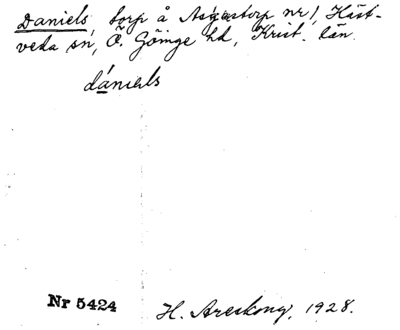 Daniels, torp å Asgastorp nr 1, Häst-
veda sn, Ö. Göinge hd, Krist. län.
dániels
Nr 5424
H. Areskoug, 1928.